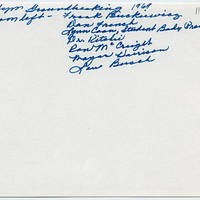 Gym Groundbreaking 1969
From left - Frank Buckiewicz
Dan French
Lynn Coon, Student Body Pres
Dr. Ritchie
Ron McCreight
Mayor Davison
Lew Busch